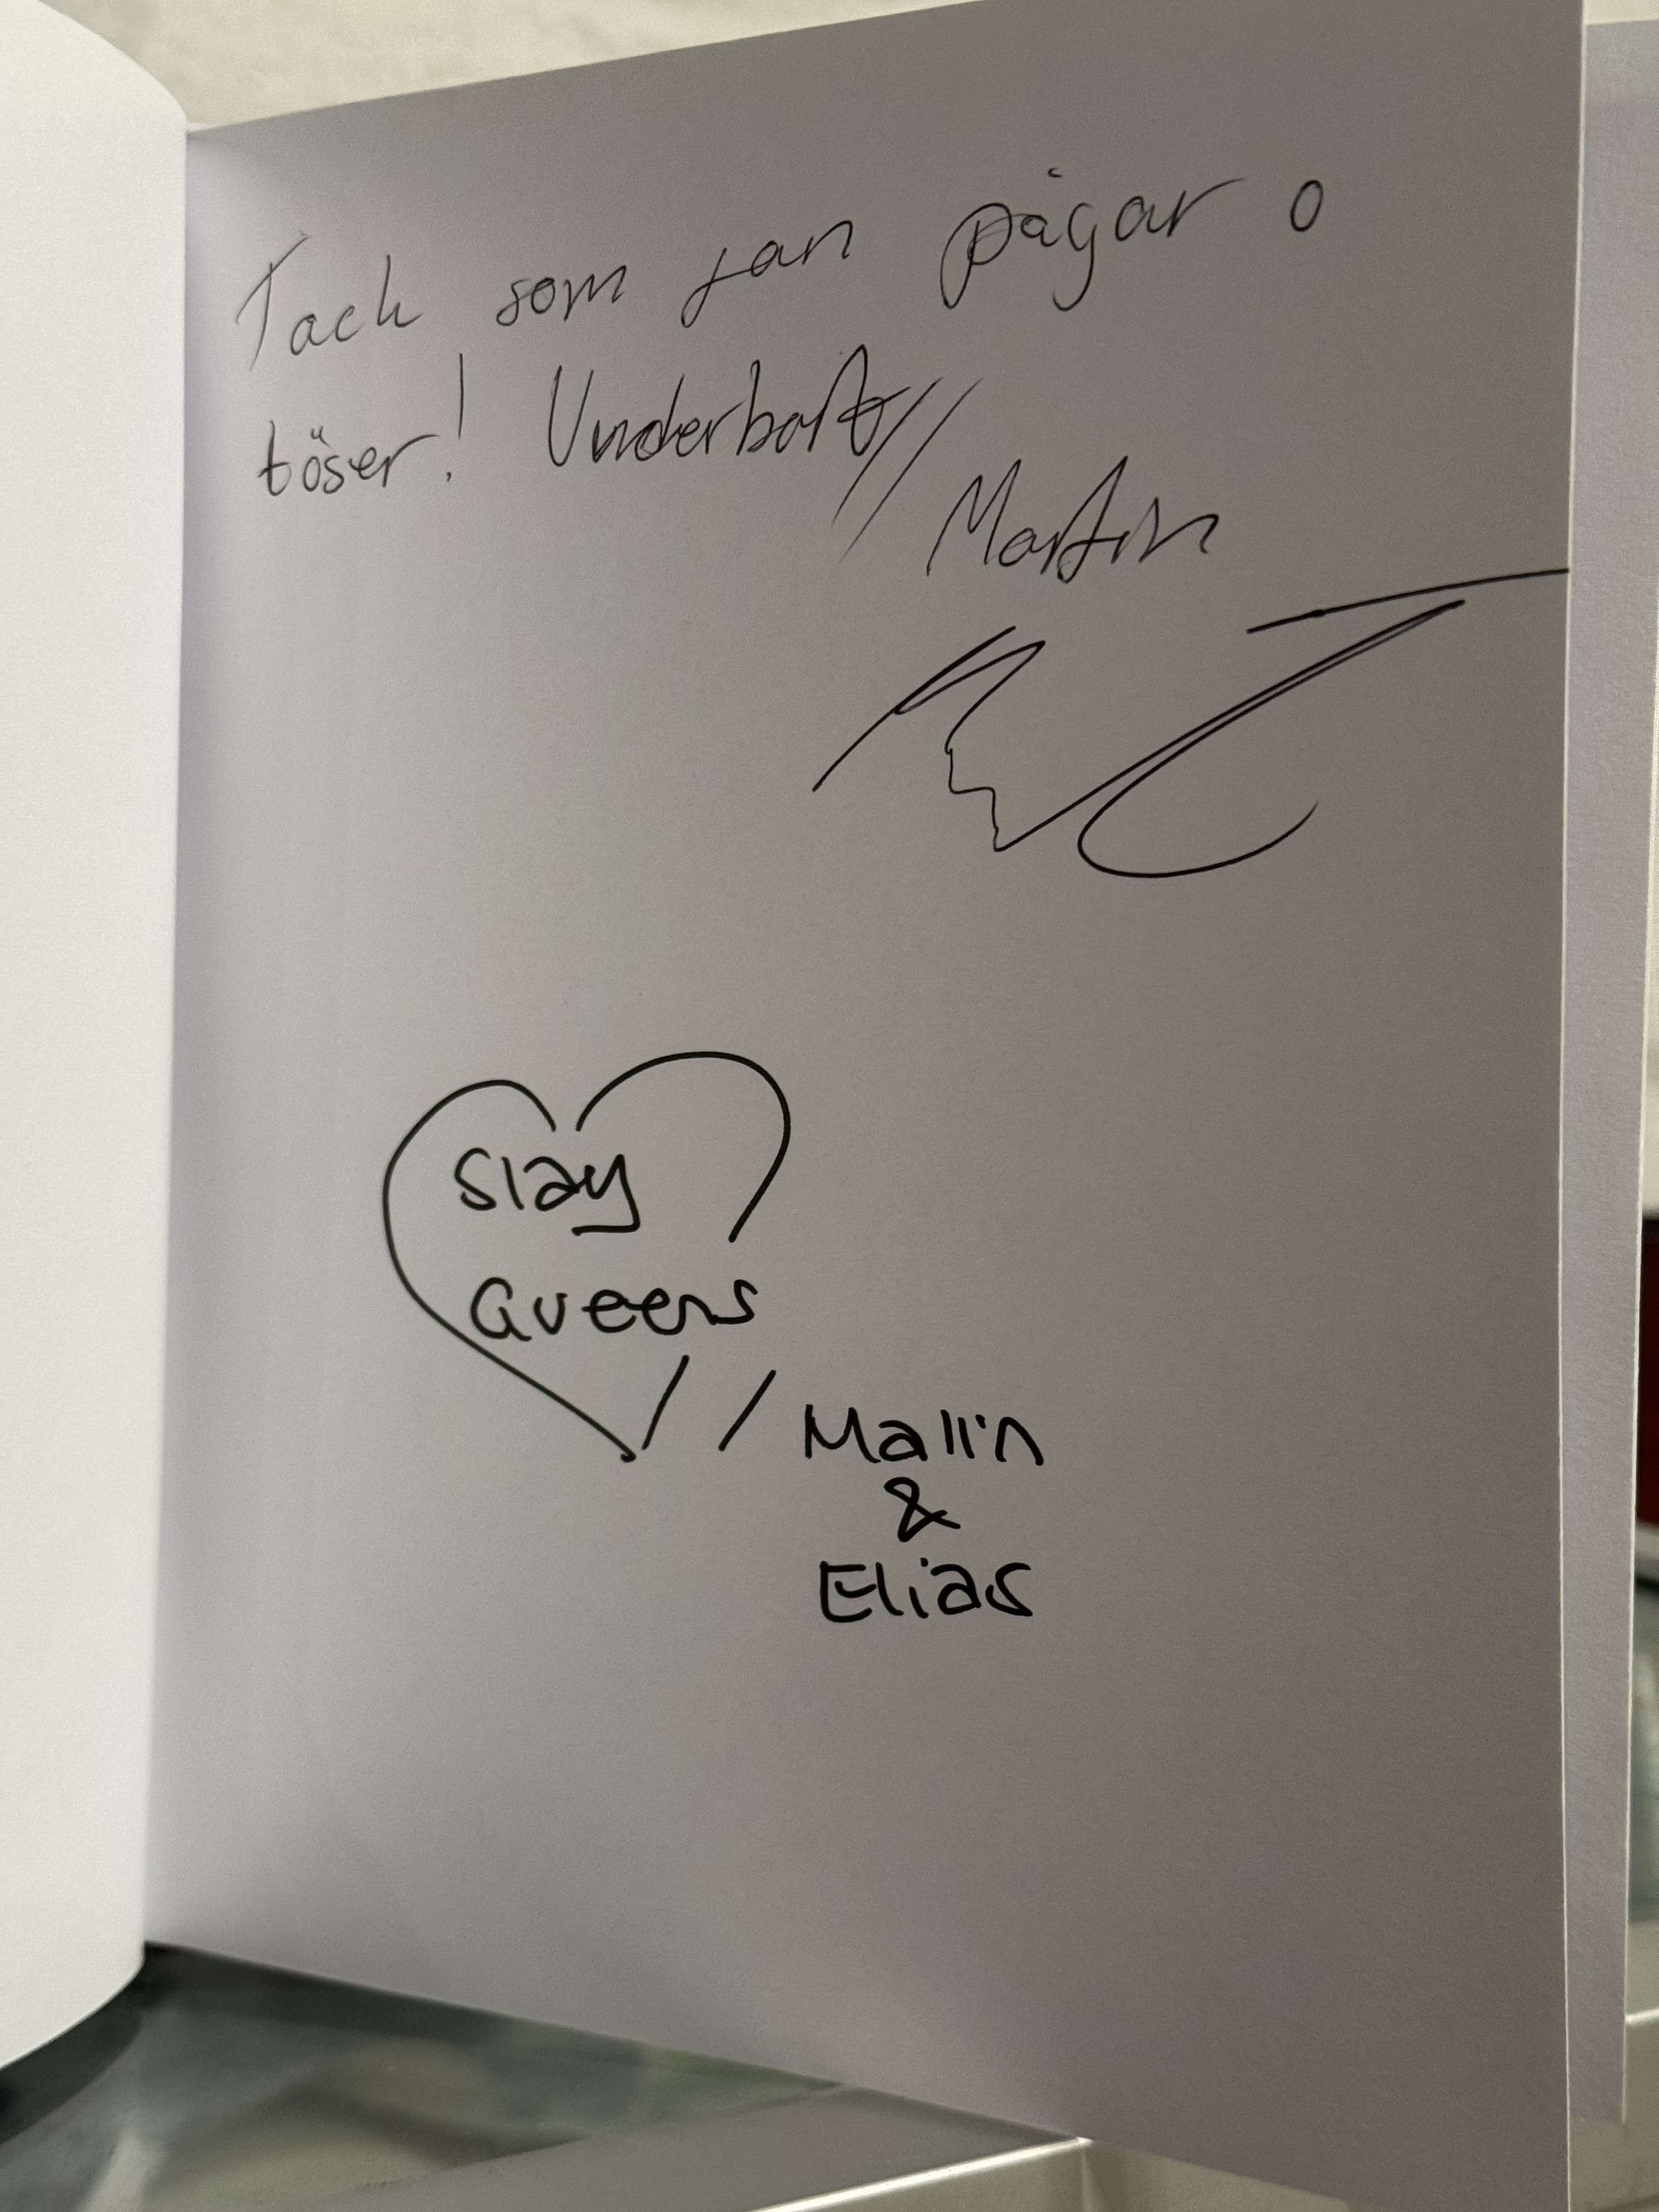 Tack som fan pågar o
töser! Underbart//
Martin
Slay
Queens
//Malin
&
Elias